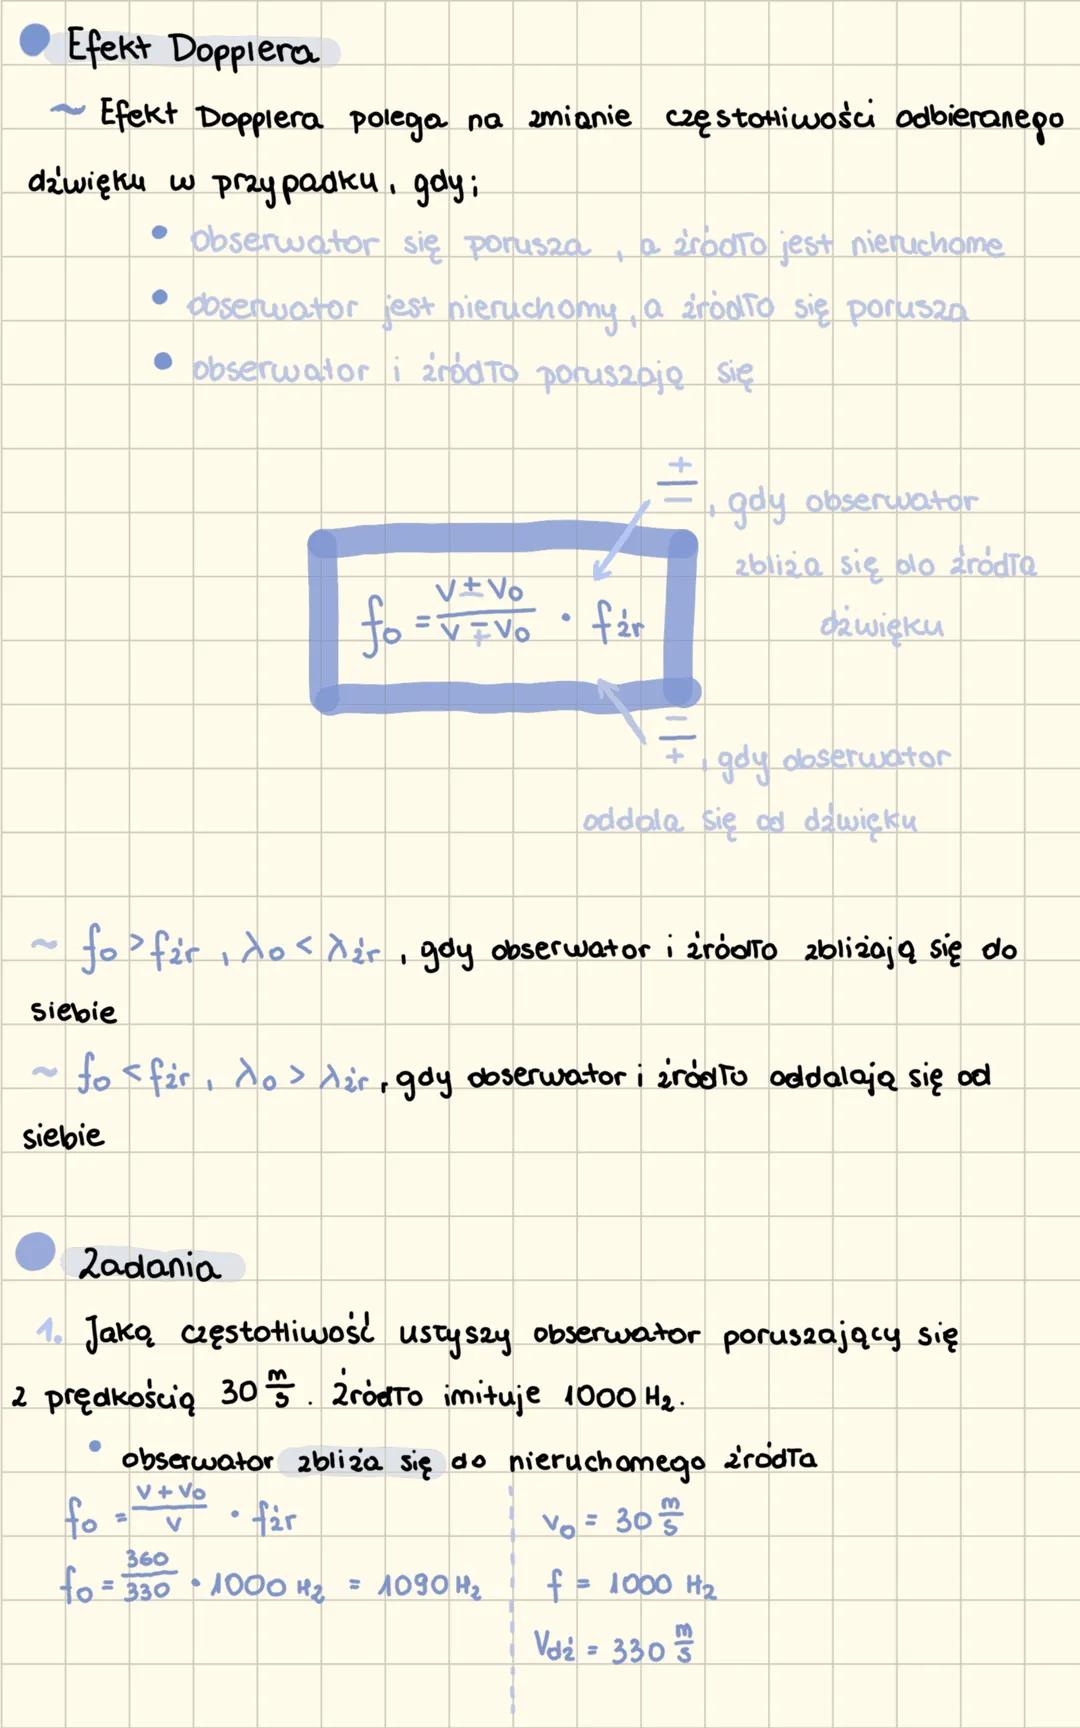 Efekt Dopplera
~ Efekt Dopplera polega na zmianie częstotliwości odbieranego
dźwięku w przypadku, gdy;
• obserwator się porusza, a źródło jest nieruchome
• obserwator jest nieruchomy, a źródło się porusza
• obserwator i źródło poruszają się
+/−, gdy obserwator
zbliża się do źródła
dźwięku
fo = (v ± vo)/(v ∓ vo) · fźr
−/+, gdy obserwator
oddala się od dźwięku
~ fo > fźr, λo < λźr, gdy obserwator i źródło zbliżają się do
siebie
~ fo < fźr, λo > λźr, gdy obserwator i źródło oddalają się od
siebie
Zadania
1. Jaką częstotliwość usłyszy obserwator poruszający się
z prędkością 30 m/s. Źródło imituje 1000 Hz.
• obserwator zbliża się do nieruchomego źródła
fo = (v + vo)/v · fźr
vo = 30 m/s
fo = 360/330 · 1000 Hz = 1090 Hz
f = 1000 Hz
Vdź = 330 m/s